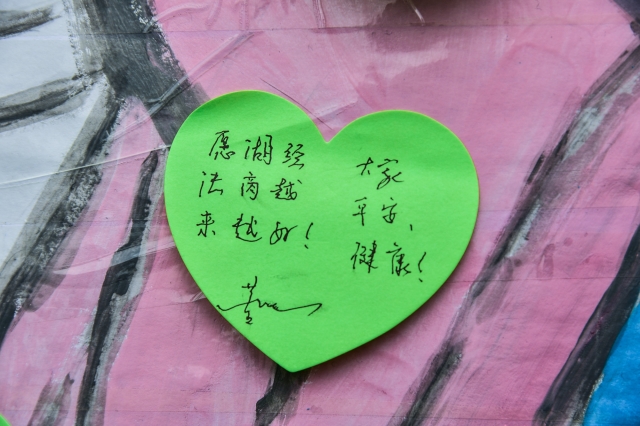 愿湖经
法商越
来越好！
大家
平安、
健康！